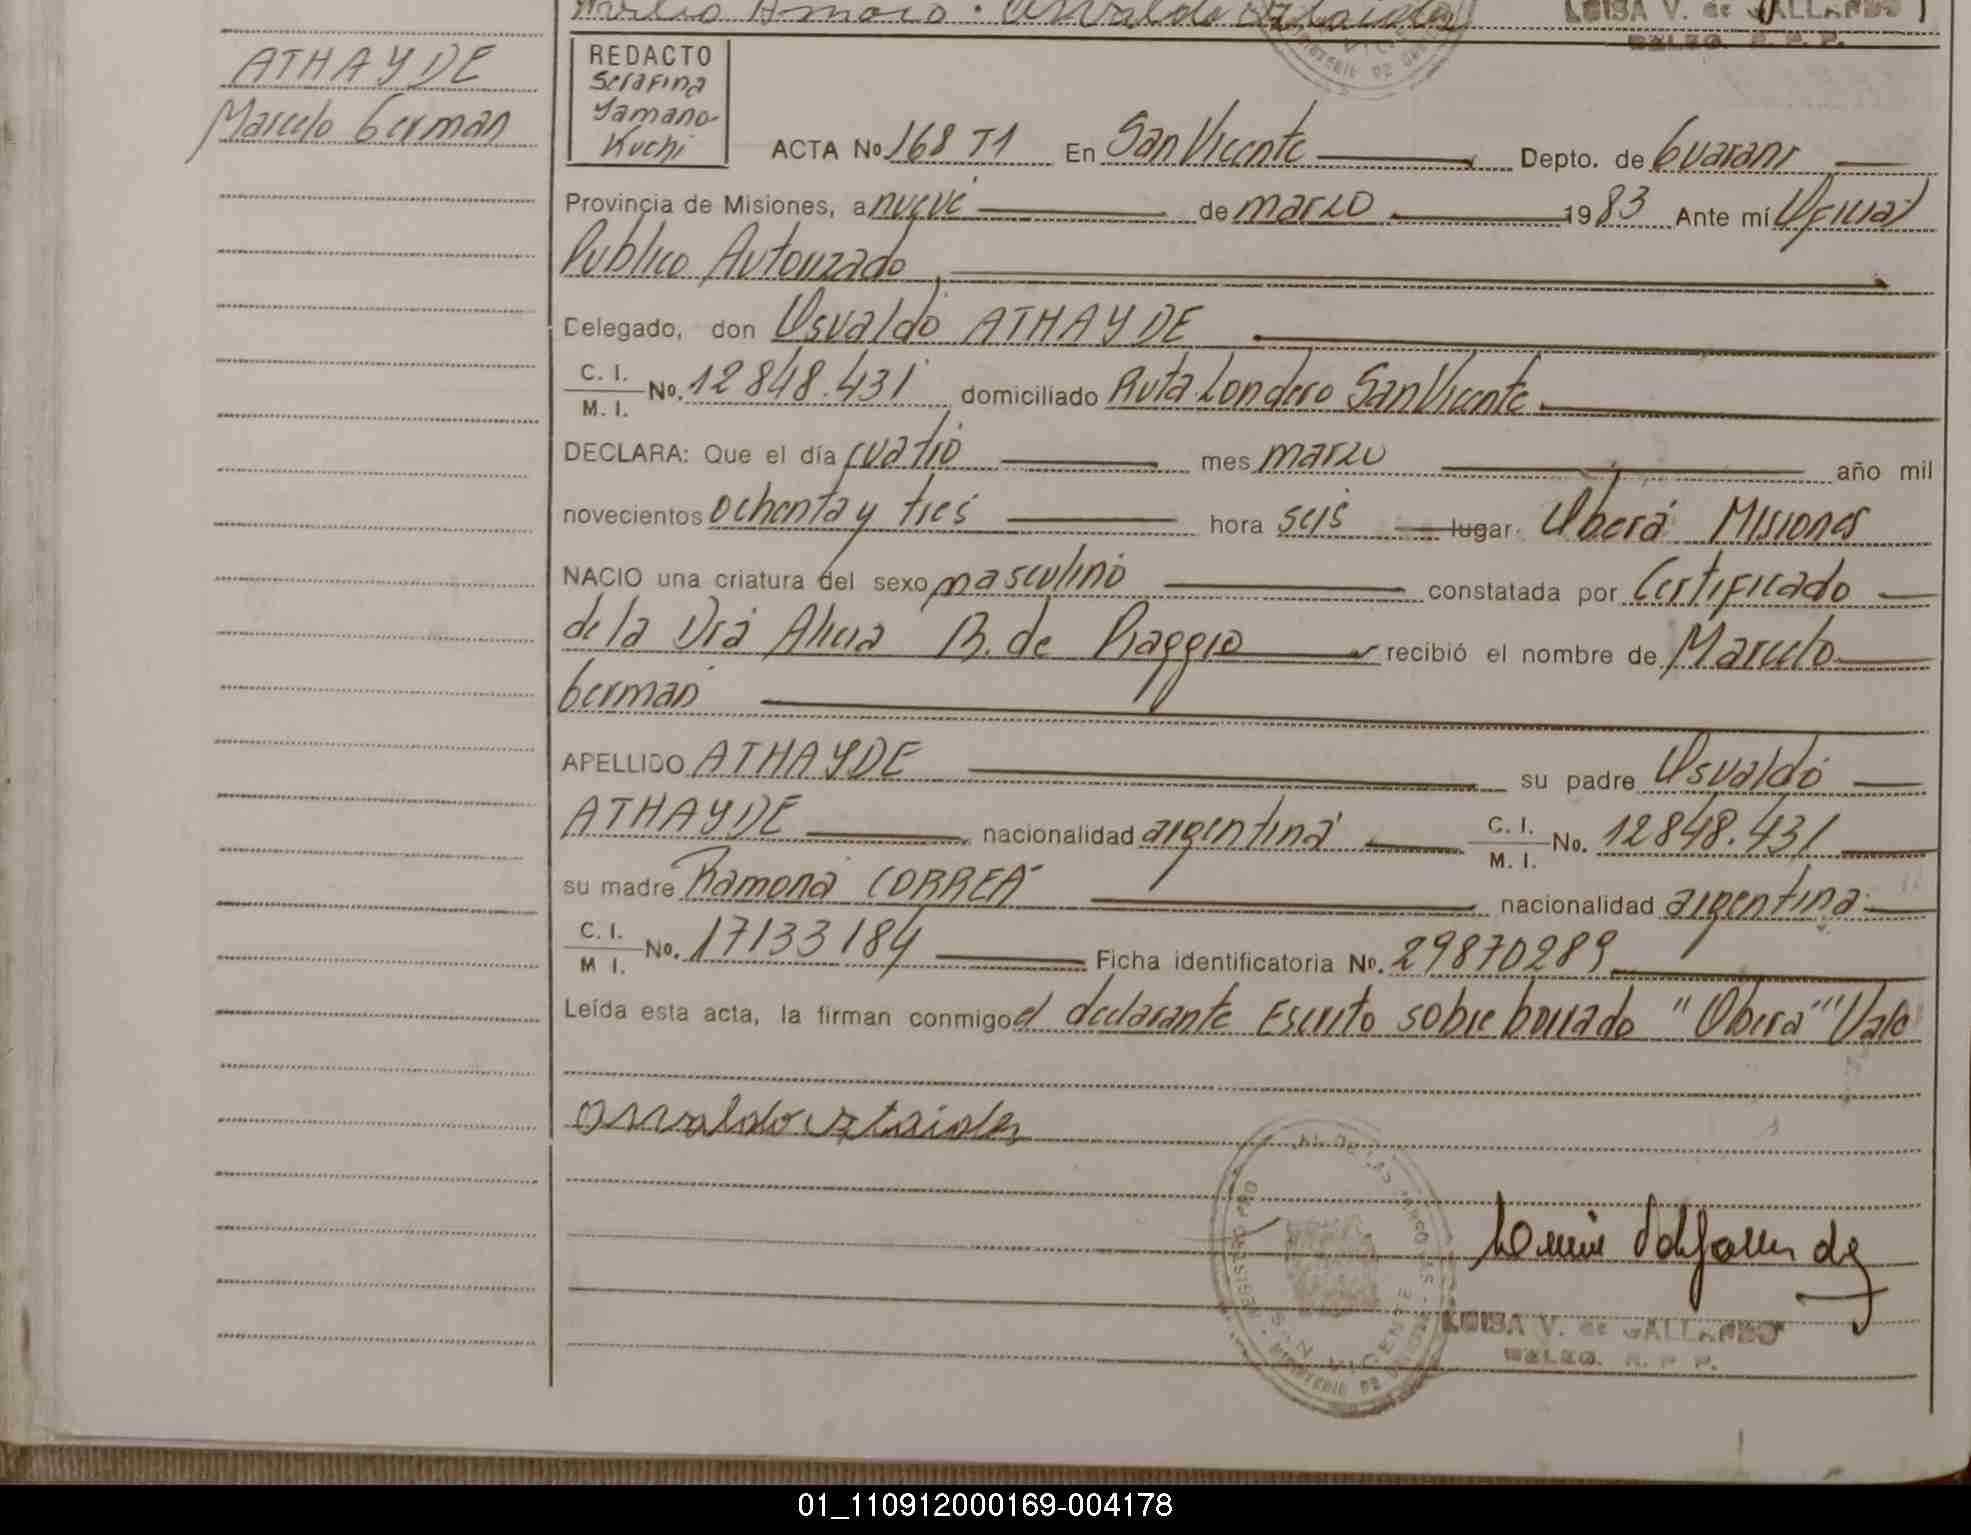 LUISA V. de GALLARDO
DELEG. R. P. P.
ATHAYDE
Marcelo German
REDACTO
Serafina
Yamano
Kuchi
ACTA No 168 T1 En San Vicente Depto. de Guarani
Provincia de Misiones, a nueve de marzo 1983 Ante mí Oficial
Publico Autorizado
Delegado, don Osvaldo ATHAYDE
C. I.
M. I. No. 12848.431 domiciliado Ruta Londero San Vicente
DECLARA: Que el día cuatro mes marzo año mil
novecientos ochenta y tres hora seis lugar Oberá Misiones
NACIO una criatura del sexo masculino constatada por Certificado
de la Dra Alicia B. de Piaggio recibió el nombre de Marcelo
German
APELLIDO ATHAYDE su padre Osvaldo
ATHAYDE nacionalidad argentina C. I.
M. I. No. 12848.431
su madre Ramona CORREA nacionalidad argentina
C. I.
M I. No. 17133184 Ficha identificatoria No. 29870289
Leída esta acta, la firman conmigo el declarante Escrito sobre borrado "Obera" Vale
SAN VICENTE
LUISA V. de GALLARDO
DELEG. R. P. P.
01_110912000169-004178